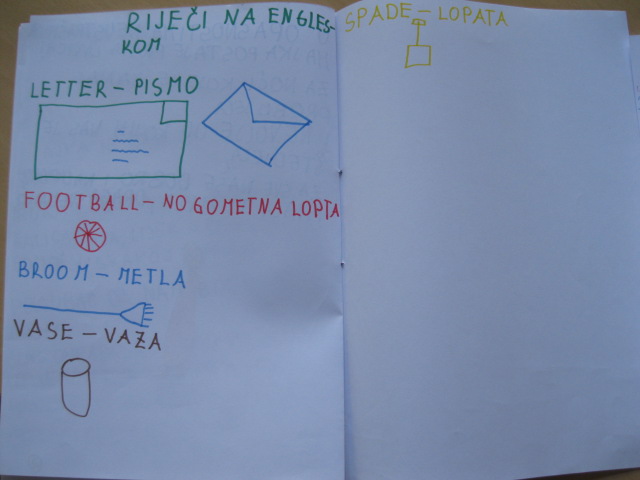 RIJEČI NA ENGLES-
KOM
LETTER – PISMO
FOOTBALL – NOGOMETNA LOPTA
BROOM – METLA
VASE – VAZA
SPADE – LOPATA